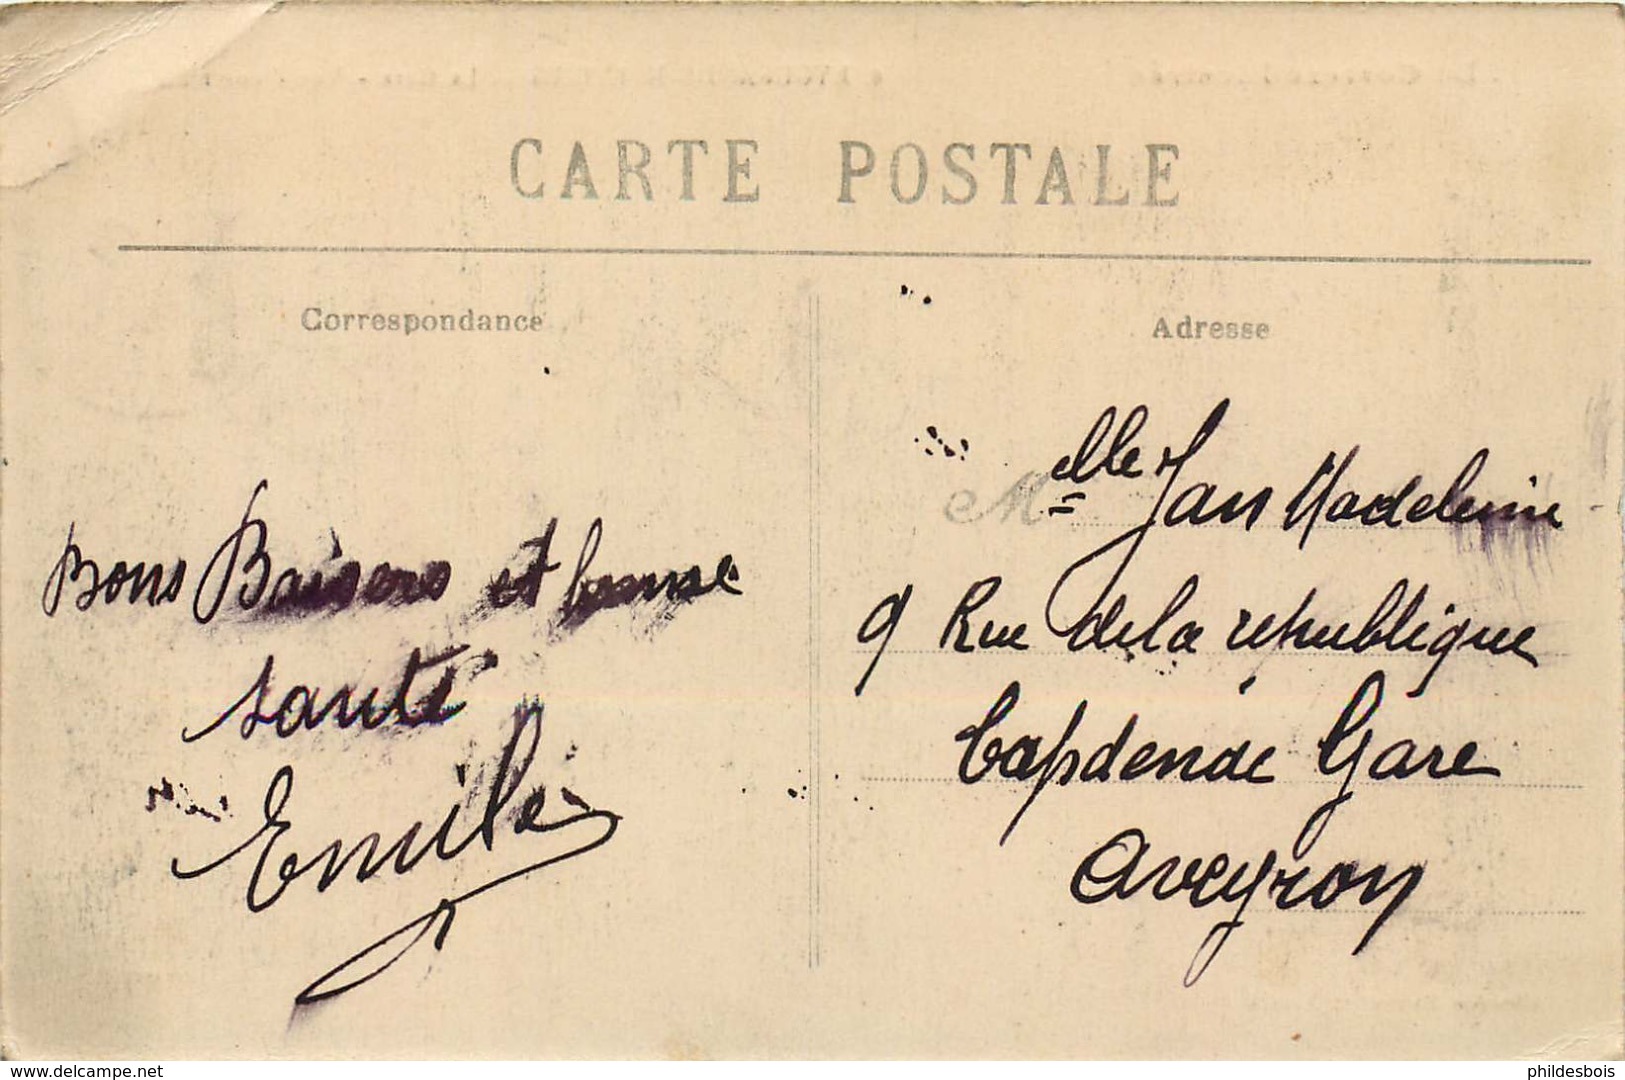 CARTE POSTALE
Correspondance
Adresse
Bons Baisers et bonne
santé
Emile
Melle Jan Madeleine
9 Rue de la république
Capdenac Gare
Aveyron
www.delcampe.net
phildesbois